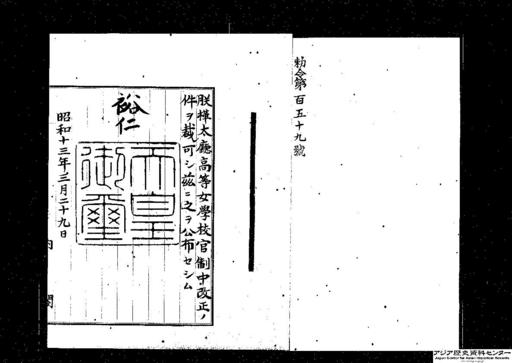 勅令第百五十九號
朕樺太廳高等女學校官制中改正ノ
件ヲ裁可シ茲ニ之ヲ公布セシム
裕仁
天皇御璽
昭和十三年三月二十九日
内閣
アジア歴史資料センター
Japan Center for Asian Historical Records